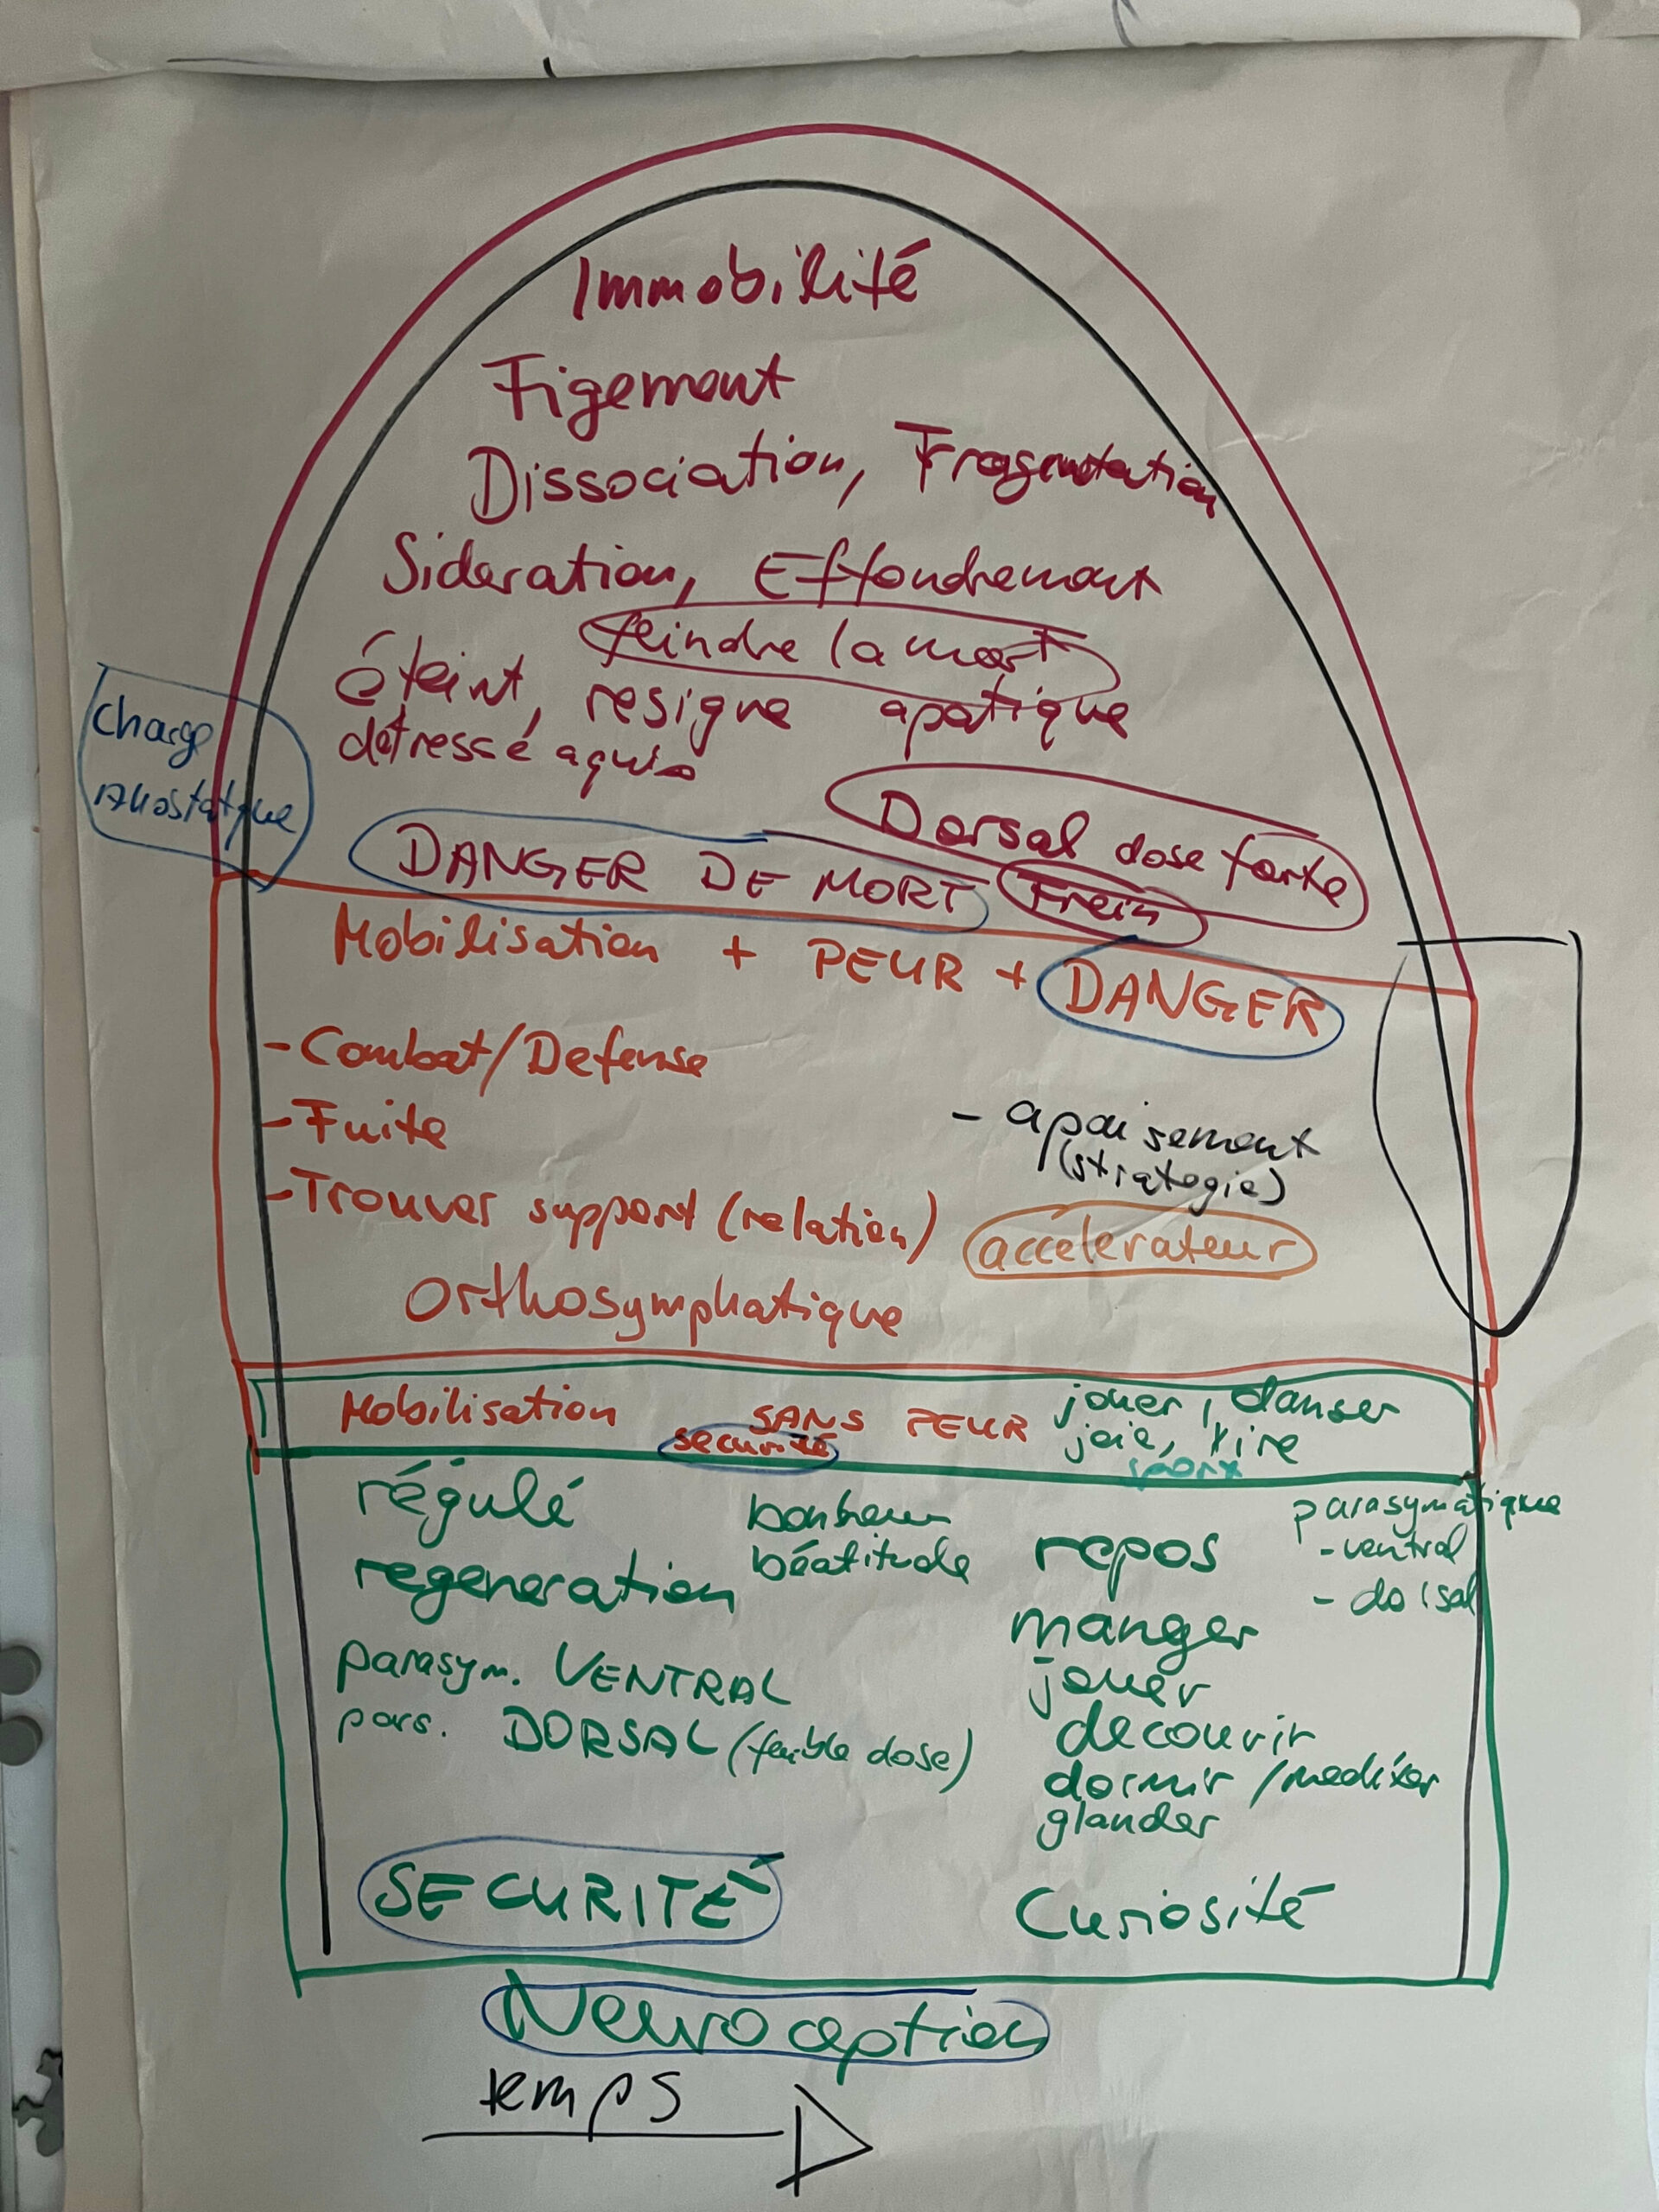 Immobilité
Figement
Dissociation, Fragmentation
Sideration, Effondrement
feindre la mort
éteint, resigne apatique
détressé aquis
Charge
Allostatique
Dorsal dose forte
DANGER DE MORT Frein
Mobilisation + PEUR + DANGER
- Combat/Defense
- Fuite
- apaisement
(strategie)
- Trouver support (relation)
accélerateur
Orthosymphatique
Mobilisation SANS PEUR jouer, danser
securité joie, rire
sport
régulé bonheur
béatitude
regeneration
repos
parasymatique
- ventral
- dorsal
manger
parasym. VENTRAL
jouer
pars. DORSAL (faible dose)
decouvrir
dormir / mediter
glander
SECURITÉ
Curiosité
Neuroception
temps